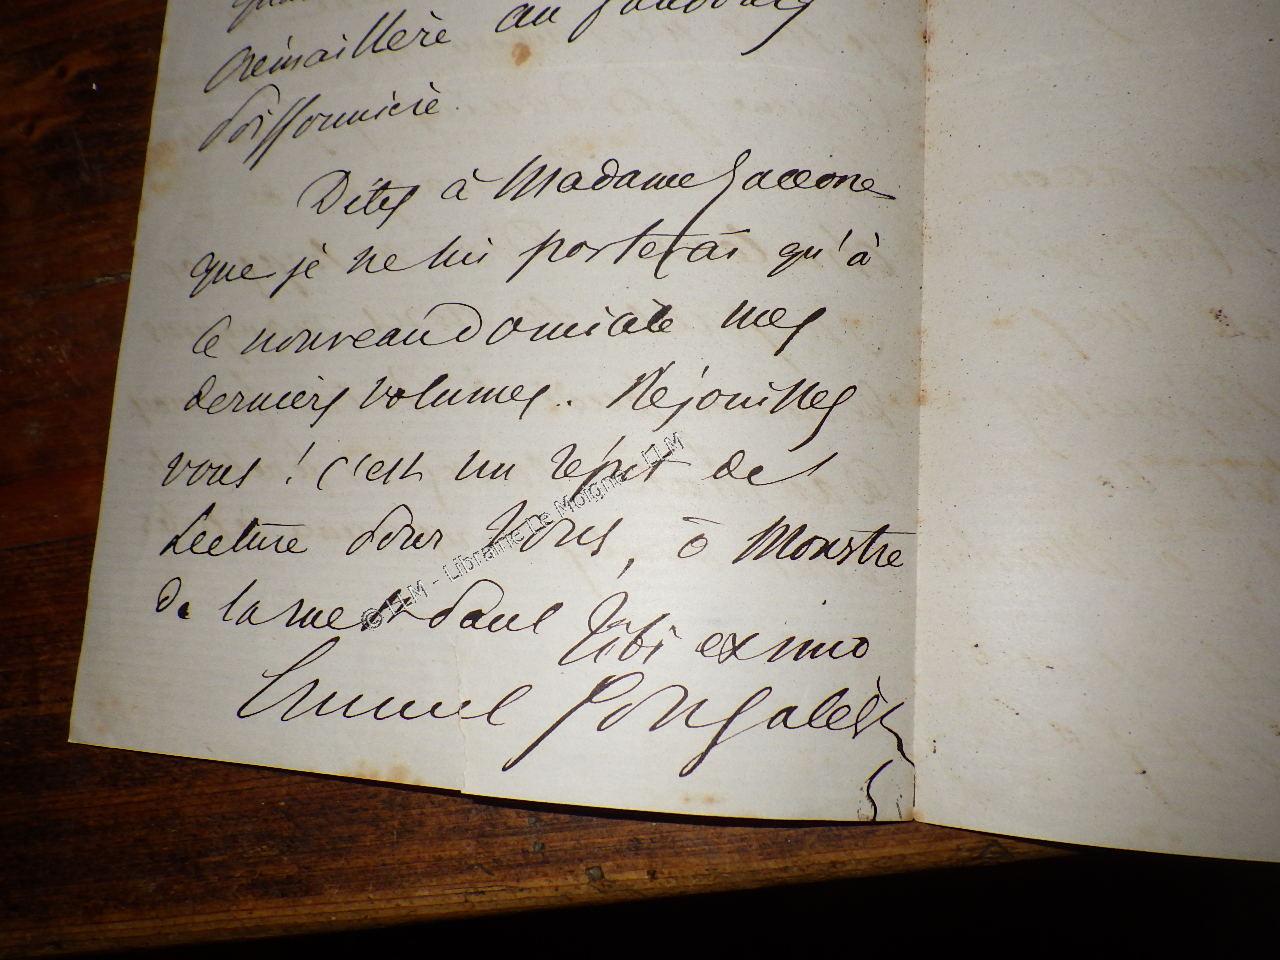 crémaillère au faubourg
Poissonnière.
Dites à Madame Zaccone
que je ne lui porterai qu'à
ce nouveau domicile mes
derniers volumes. Réjouissez
vous ! c'est un répit de
lecture pour vous, ô Monstre
de la rue St Paul Tibi ex imo
Emmanuel Gonzalès
© LLM - Librairie De Moigne - LLM